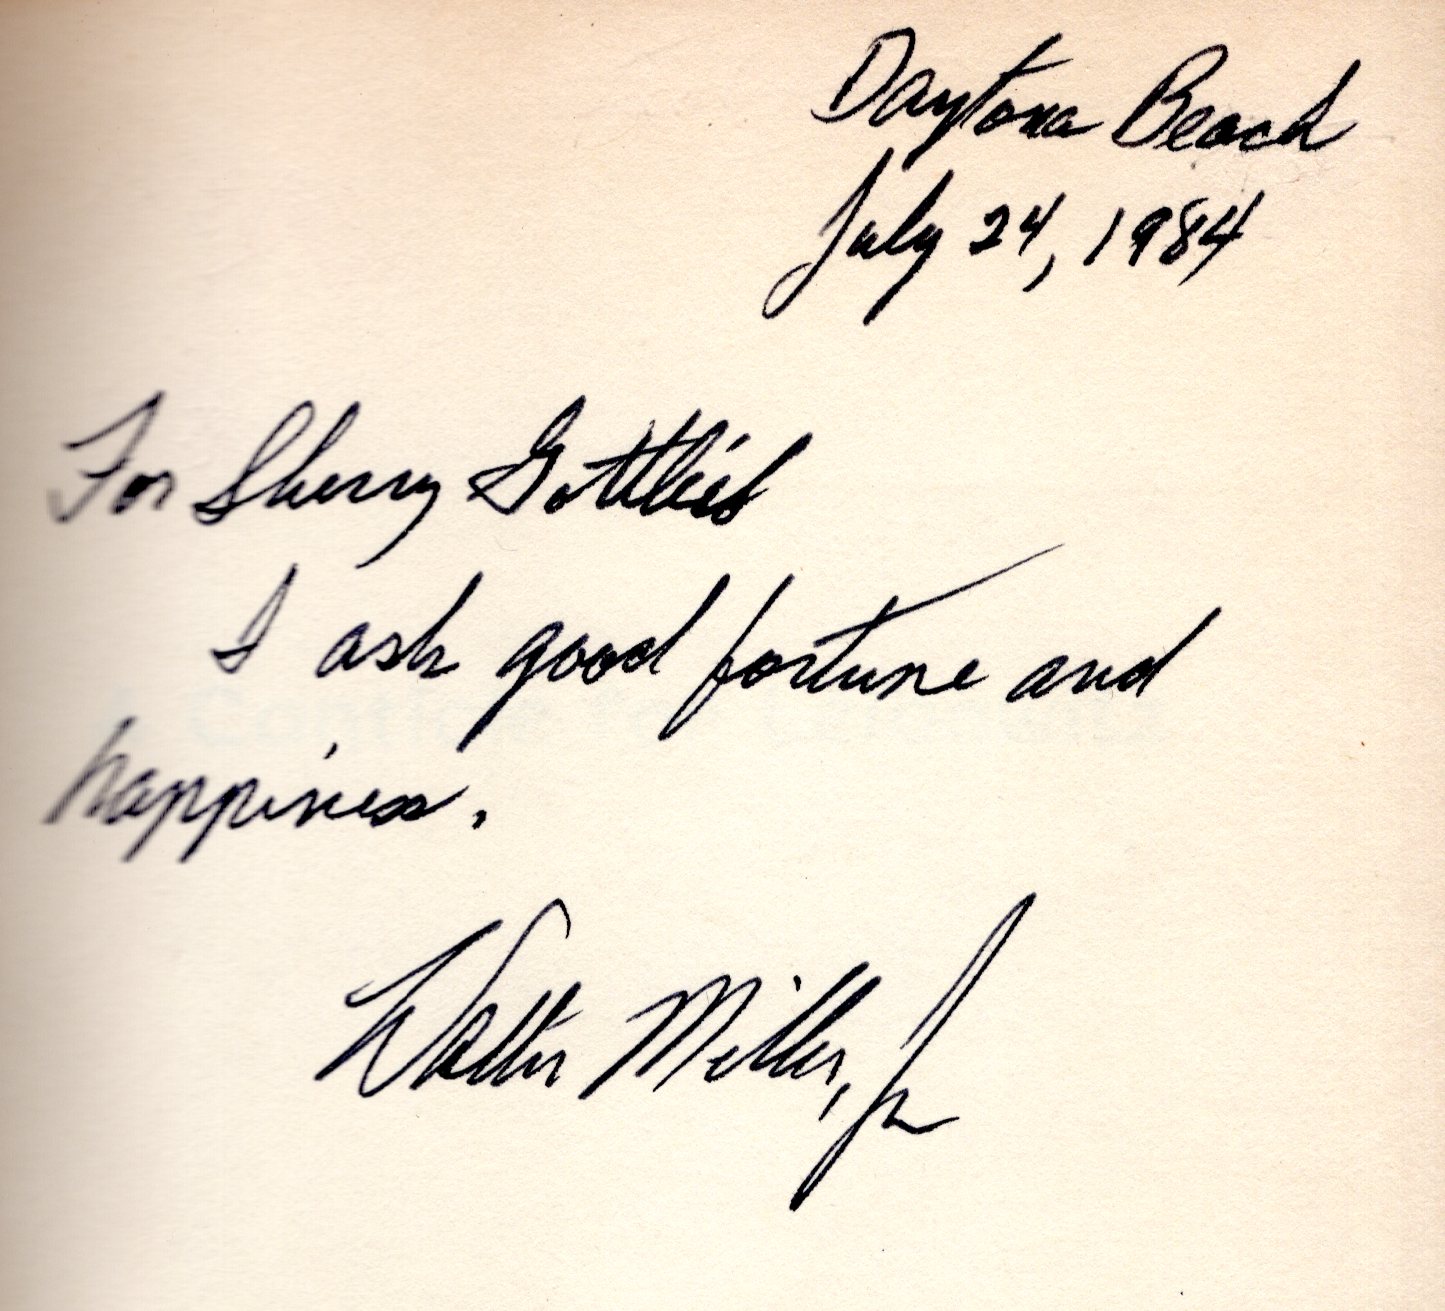 Daytona Beach
July 24, 1984
For Sherry Gottlieb
I ask good fortune and
happiness.
Walter Miller, Jr